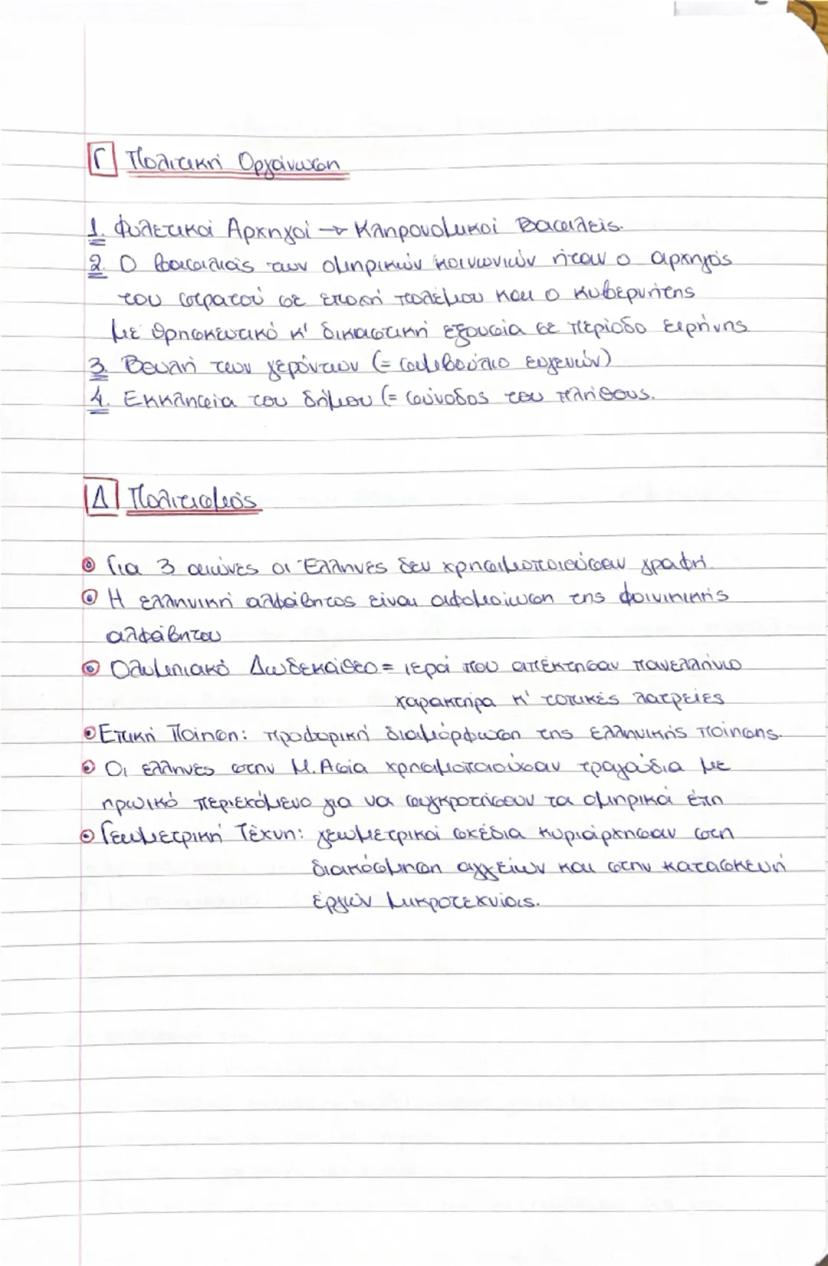 Γ Πολιτική Οργάνωση
1. Φυλετικοί Αρχηγοί → Κληρονομικοί Βασιλείς.
2. Ο βασιλιάς των ομηρικών κοινωνιών ήταν ο αρχηγός
του στρατού σε εποχή πολέμου και ο κυβερνήτης
με θρησκευτικό κ' δικαστική εξουσία σε περίοδο ειρήνης
3. Βουλή των γερόντων (= συμβούλιο ευγενών)
4. Εκκλησία του δήμου (= σύνοδος του πλήθους.
Δ Πολιτισμός
Για 3 αιώνες οι Έλληνες δεν χρησιμοποιούσαν γραφή.
Η ελληνική αλφάβητος είναι αφομοίωση της φοινικικής
αλφάβητου
Ολυμπιακό Δωδεκάθεο = ιερά που απέκτησαν πανελλήνιο
χαρακτήρα κ' τοπικές λατρείες
Επική Ποίηση: προφορική διαμόρφωση της ελληνικής ποίησης.
Οι έλληνες στην Μ.Ασία χρησιμοποιούσαν τραγούδια με
ηρωικό περιεχόμενο για να συγκροτήσουν τα ομηρικά έπη
Γεωμετρική Τέχνη: γεωμετρικά σχέδια κυριάρχησαν στη
διακόσμηση αγγείων και στην κατασκευή
έργων μικροτεχνίας.